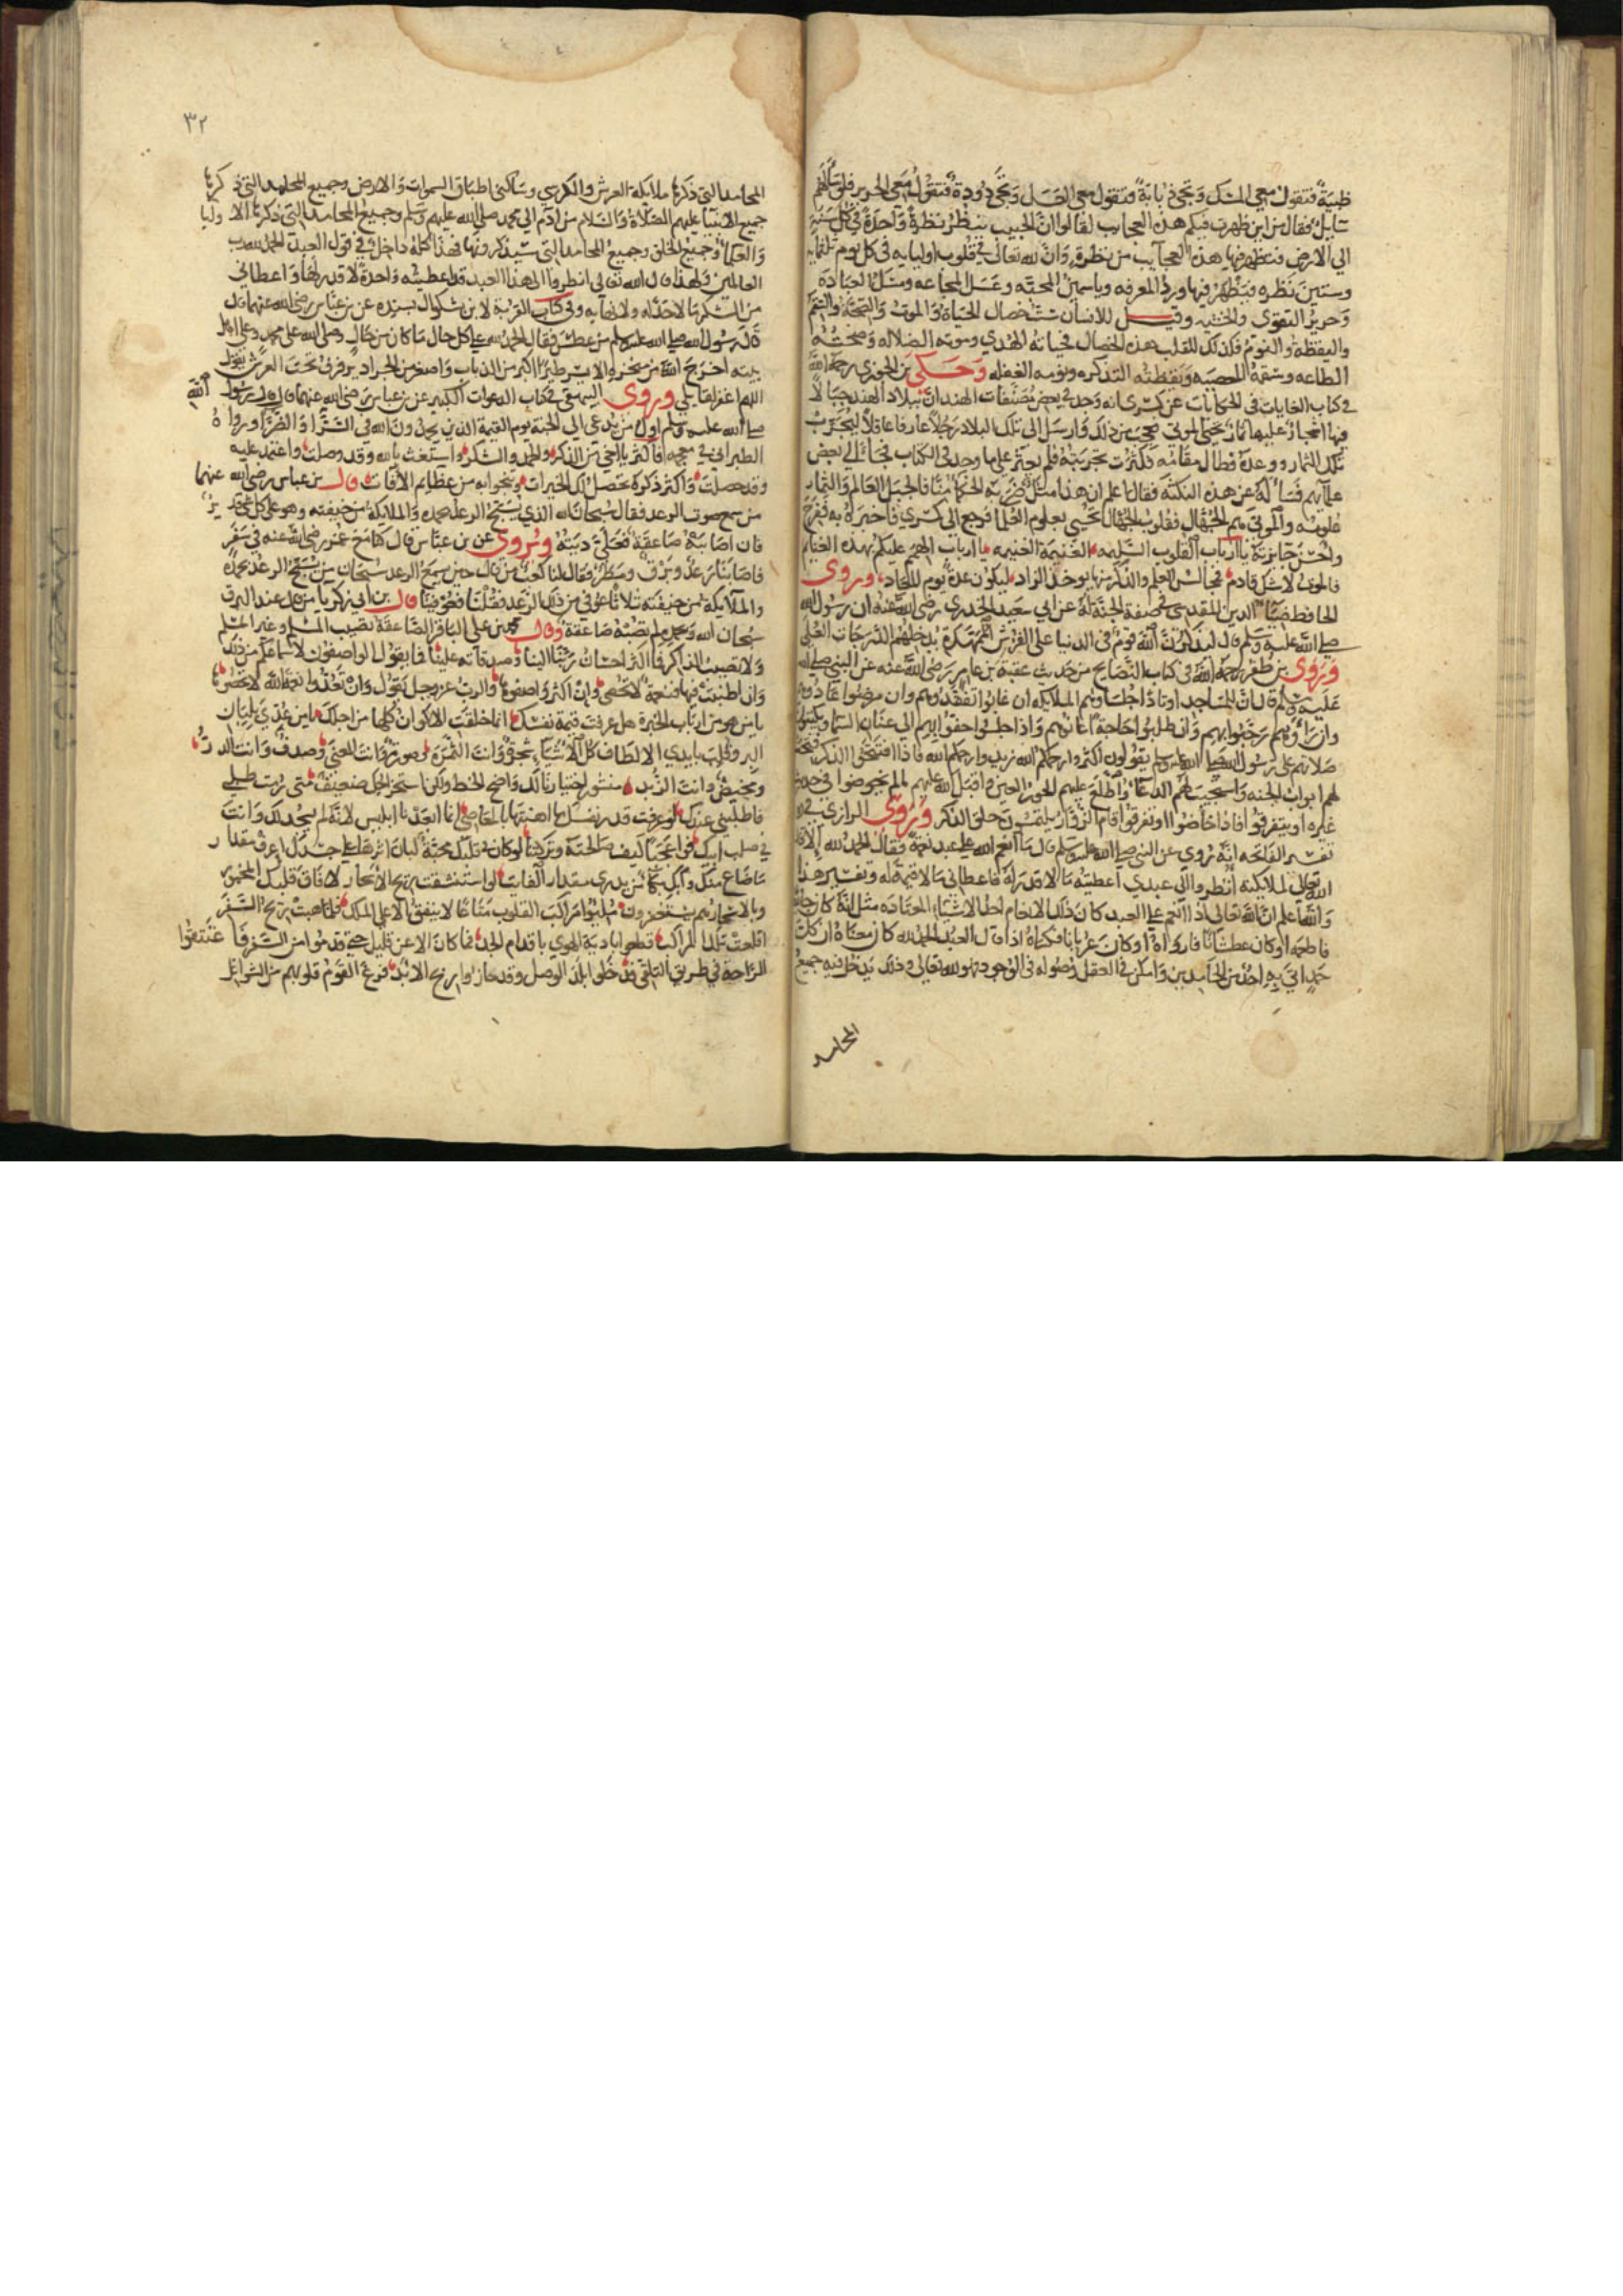 ظبية فتقول معي المسك وتجي ذبابة فتقول معي العسل وتجي دودة فتقول معي الحرير فلو سألهم
سايل فقال من اين ظهرت فيكم هذه العجايب لقالوا ان الحبيب ينظر نظرة واحدة في كل سنة
الى الارض فتظهر فيها هذه العجايب من نظرة وان لله تعالى في قلوب اوليايه في كل يوم ثلثماية
وستين نظره فيظهر فيها ورد المعرفه وياسمين المحبه وعسل المجاعه ومسك العباده
وحرير التقوى والخشيه وقيل للانسان ست خصال الحياة والموت والصحة والسقم
واليقظة والنوم فكذلك للقلب هذه الخصال فحياته الهدي وموته الضلاله وصحته
الطاعه وسقمه المعصيه ويقظته التذكره ونومه الغفله وحكى بن الجوزي رحمه الله
في كتاب الغايات في الحكايات عن كسرى انه وجد في بعض مصنفات الهند ان ببلاد الهند جبالا
فيها اشجار عليها ثمار تحيي الموتى فعجب من ذلك وارسل الى تلك البلاد رجلا عارفا عاقلا ليجرب
تلك الثمار ووعده فطال مقامه وكثرت تجربته فلم يعثر على ما وجد في الكتاب فجا الى بعض
علمايهم فسأله عن هذه النكته فقال اعلم ان هذا مثل ضربه الحكما منا فالجبل العالم والثمار
علومه والموتى هم الجهال فقلوب الجهال تحيي بعلوم العلما فرجع الى كسري فاخبره به ففرح
واحسن جايزته يا ارباب القلوب السليمه الغنيمة الغنيمه يا ارباب الهمم عليكم بهذه الغنايم
فالموت لا شك قادم فمجالس العلم والذكر منها يوخذ الزاد ليكون عدة ليوم المعاد وروى
الحافظ ضيا الدين المقدسى في صفة الجنة له عن ابي سعيد الخدري رضى الله عنه ان رسول الله
صلى الله عليه وسلم قال ليذكرن الله قوم في الدنيا على الفرش الممهدة يدخلهم الدرجات العلى
وروى بن ظفر رحمه الله في كتاب النصايح من حديث عقبة بن عامر رضى الله عنه عن النبي صلى الله
عليه وسلم قال ان للمساجد اوتادا جلساوهم الملايكه ان غابوا تفقدوهم وان مرضوا عادوهم
وان راوهم رحبوا بهم وان طلبوا حاجة اعانوهم واذا جلسوا حفوا بهم الى عنان السما ويكتبون
صلاتهم على رسول الله صلى الله عليه وسلم يقولون اكثروا رحمكم الله زيدوا رحمكم الله فاذا افتتحوا الذكر فتحت
لهم ابواب الجنه واستجيب لهم الدعا واطلع عليهم الحور العين واقبل الله عليهم ما لم يخوضوا في حديث
غيره او يتفرقوا فاذا خاضوا او تفرقوا قام الزوار يلتمسون حلق الذكر وروى الرازي في
تفسير الفاتحه انه روي عن النبي صلى الله عليه وسلم قال ما انعم الله على عبد نعمة فقال الحمد لله الا قال
الله تعالى لملايكته انظروا الى عبدي اعطيته ما لا قدر له فاعطاني ما لا قيمة له وتفسير هذا
والله اعلم ان الله تعالى اذا انعم على العبد كان ذلك الانعام احد الاشياء المعتاده مثل انه كان جايعا
فاطعمه او كان عطشانا فارواه او كان عريانا فكساه اذا قال العبد الحمد لله كان معناه ان كل
حمد اتى به احد من الحامدين وامكن في العقل دخوله في الوجود فهو لله تعالى وذلك يدخل فيه جميع
المحامد
٣٢
المحامد التي ذكرها ملايكة العرش والكرسي وساكني اطباق السموات والارض وجميع المحامد التي ذكرها
جميع الانبيا عليهم الصلاة والسلام من ادم الى محمد صلى الله عليهم وسلم وجميع المحامد التى ذكرها الاوليا
والعلما وجميع الخلق وجميع المحامد التي سيذكرونها فهذا كله داخل في قول العبد الحمد لله رب
العالمين ولهذا قال الله تعالى انظروا الى هذا العبد قد اعطيته واحدة لا قدر لها واعطاني
من الشكر ما لا حد له ولا نهايه وفي كتاب القربة لابن بشكوال بسنده عن بن عباس رضى الله عنهما قال
قال رسول الله صلى الله عليه وسلم من عطس فقال الحمد لله على كل حال ما كان من حال وصلى الله على محمد وعلى اهل
بيته اخرج الله من منخره الايسر طيرا اكبر من الذباب واصغر من الجراد يرفرف تحت العرش يقول
اللهم اغفر لقايلي وروى البيهقي في كتاب الدعوات الكبير عن بن عباس رضى الله عنهما قال قال رسول الله
صلى الله عليه وسلم اول من يدعى الى الجنة يوم القيمة الذين يحمدون الله في السرا والضرا ورواه
الطبراني في معجمه فاكثر يا اخي من الذكر والحمد والشكر واستغث بالله وقد وصلت واعتمد عليه
وقد حصلت واكثر ذكره تحصل لك الخيرات وتنجوا به من عظايم الافات قال بن عباس رضى الله عنهما
من سمع صوت الرعد فقال سبحان الله الذي يسبح الرعد بحمده والملايكة من خيفته وهو على كل شي قدير
فان اصابته صاعقة فعلي ديته ويروى عن بن عباس قال كنا مع عمر رضى الله عنه في سفر
فاصابنا رعد وبرق ومطر فقال لنا كعب من قال حين يسمع الرعد سبحان من يسبح الرعد بحمده
والملايكة من خيفته ثلاثا عوفى من ذلك الرعد فقلنا فعوفينا قال بن ابى زكريا من قال عند البرق
سبحان الله وبحمده لم تصبه صاعقة وقال محمد بن على الباقر الصاعقة تصيب المسلم وغير المسلم
ولا تصيب الذاكر فما اكثر احسان ربنا الينا وصدقاته علينا فما يقول الواصفون
وان اطنبت فيها فنعمه لا تحصى وان اكثر واصفوها والرب عز وجل يقول وان تعدوا نعمة الله لا تحصوها
يا من هو من ارباب الخبرة هل عرفت قيمة نفسك انما خلقت الاكوان كلها من اجلك يا من غذي بلبان
البر وقلب بايدي الالطاف كل الاشياء شجرة وانت الثمرة وصورة وانت المعنى وصدف وانت الدر
ومخيض وانت الزبد منشور اختيارنا لك واضح الخط ولكن استخراجك ضعيف متى رمت طلبي
فاطلبني عندك لو عرفت قدر نفسك ما اهنتها بالمعاصي انما ابعدنا ابليس لانه لم يسجد لك وانت
في صلب ابيك فواعجبا كيف صالحته وتركتنا لو كان في قلبك محبة لبان اثرها على جسدك اعرف مقدار
ما ضاع منك وابك بكا من يدري مقدار الفايت لو استنشقت ريح الاسحار لافاق قلبك المخمور
وبالاسحار هم يستغفرون ملوا مراكب القلوب متاعا لا ينفق الا على الملك فلما هبت ريح السحر
اقلعت تلك المراكب قطعوا بادية الهوي باقدام الجد فما كان الا عن قليل حتى قدموا من السفر فاعتنقوا
الراحة في طريق التلقي فدخلوا بلد الوصل وقد حازوا ربح الابد فرغ القوم قلوبهم من الشواغل